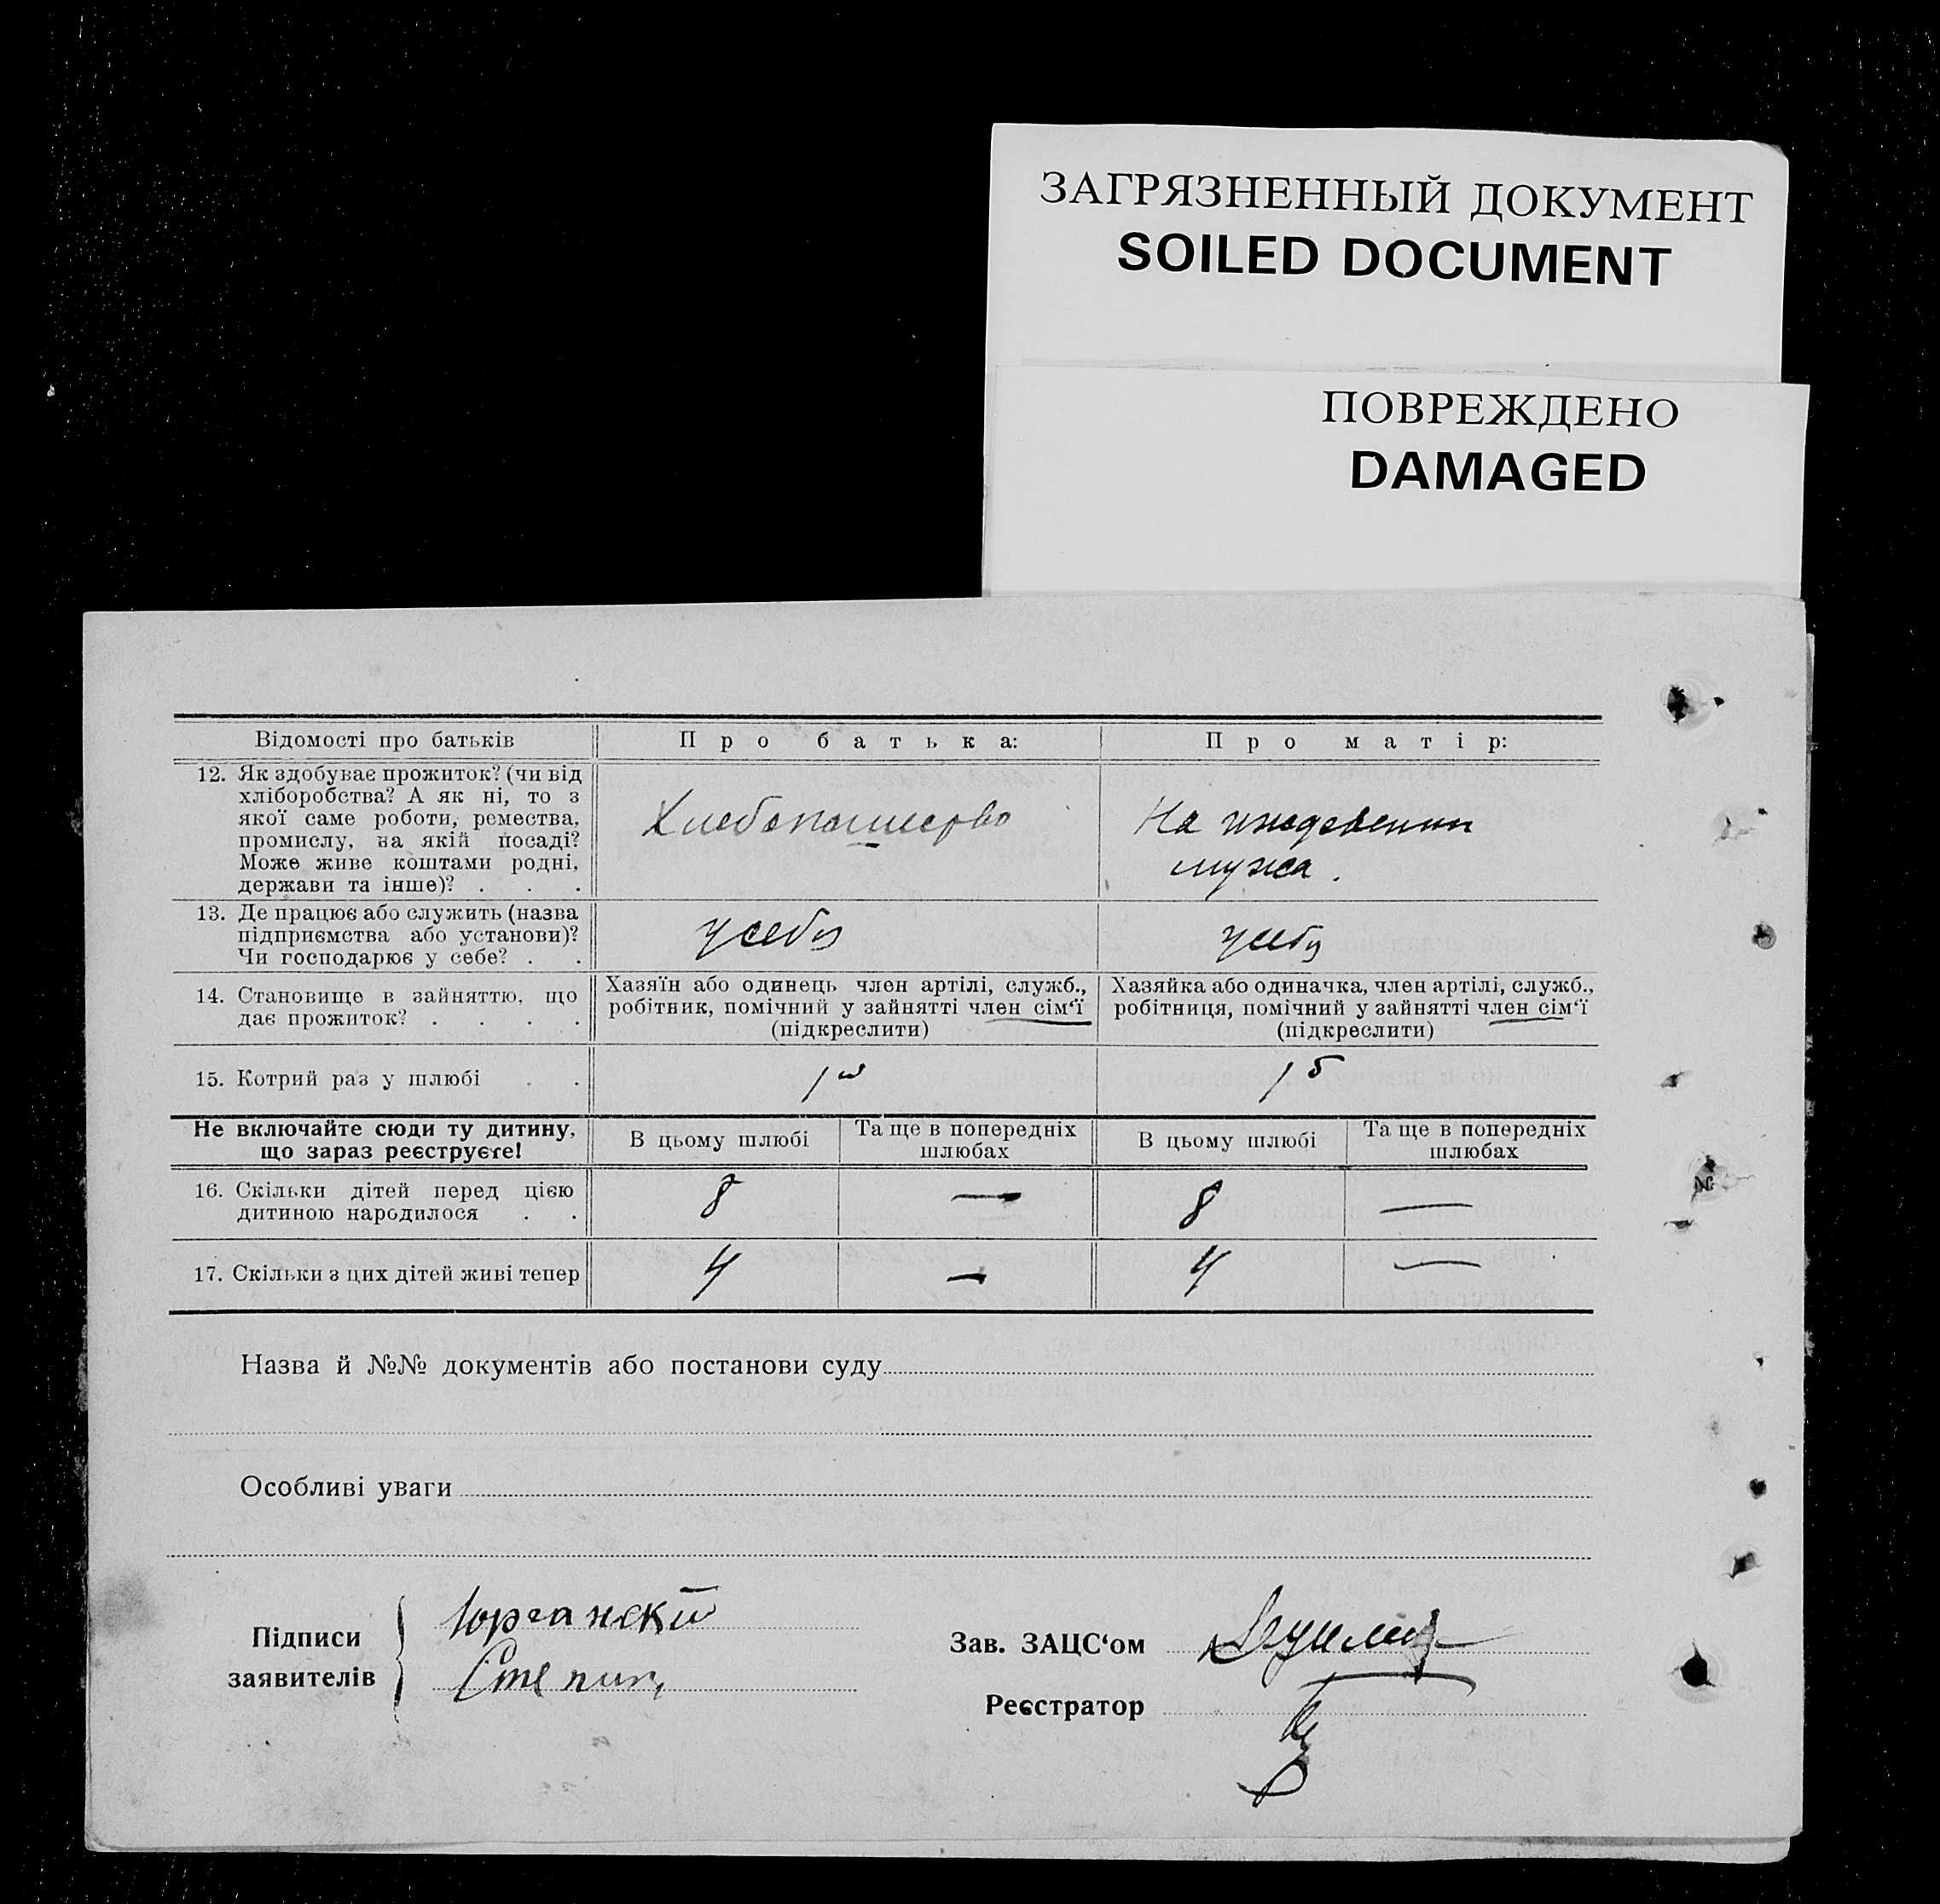 ЗАГРЯЗНЕННЫЙ ДОКУМЕНТ
SOILED DOCUMENT
ПОВРЕЖДЕНО
DAMAGED
Відомості про батьків
Про батька:
Про матір:
12. Як здобуває прожиток? (чи від
хліборобства? А як ні, то з
якої саме роботи, ремества,
промислу, на якій посаді?
Може живе коштами родні,
держави та інше)? . . .
Хлебопашество
На иждевении
мужа.
13. Де працює або служить (назва
підприємства або установи)?
Чи господарює у себе? . .
у себя
у себя
14. Становище в зайняттю, що
дає прожиток? . . . .
Хазяїн або одинець член артілі, служб.,
робітник, помічний у зайнятті член сім‘ї
(підкреслити)
Хазяйка або одиначка, член артілі, служб.,
робітниця, помічний у зайнятті член сім‘ї
(підкреслити)
15. Котрий раз у шлюбі . .
1й
1й
Не включайте сюди ту дитину,
що зараз реєструєте!
В цьому шлюбі
Та ще в попередніх
шлюбах
В цьому шлюбі
Та ще в попередніх
шлюбах
16. Скільки дітей перед цією
дитиною народилося . .
8 — 8 —
17. Скільки з цих дітей живі тепер
4 — 4 —
Назва й №№ документів або постанови суду
Особливі уваги
Підписи
заявителів
Юрганский
Степан
Зав. ЗАЦС‘ом
Реєстратор